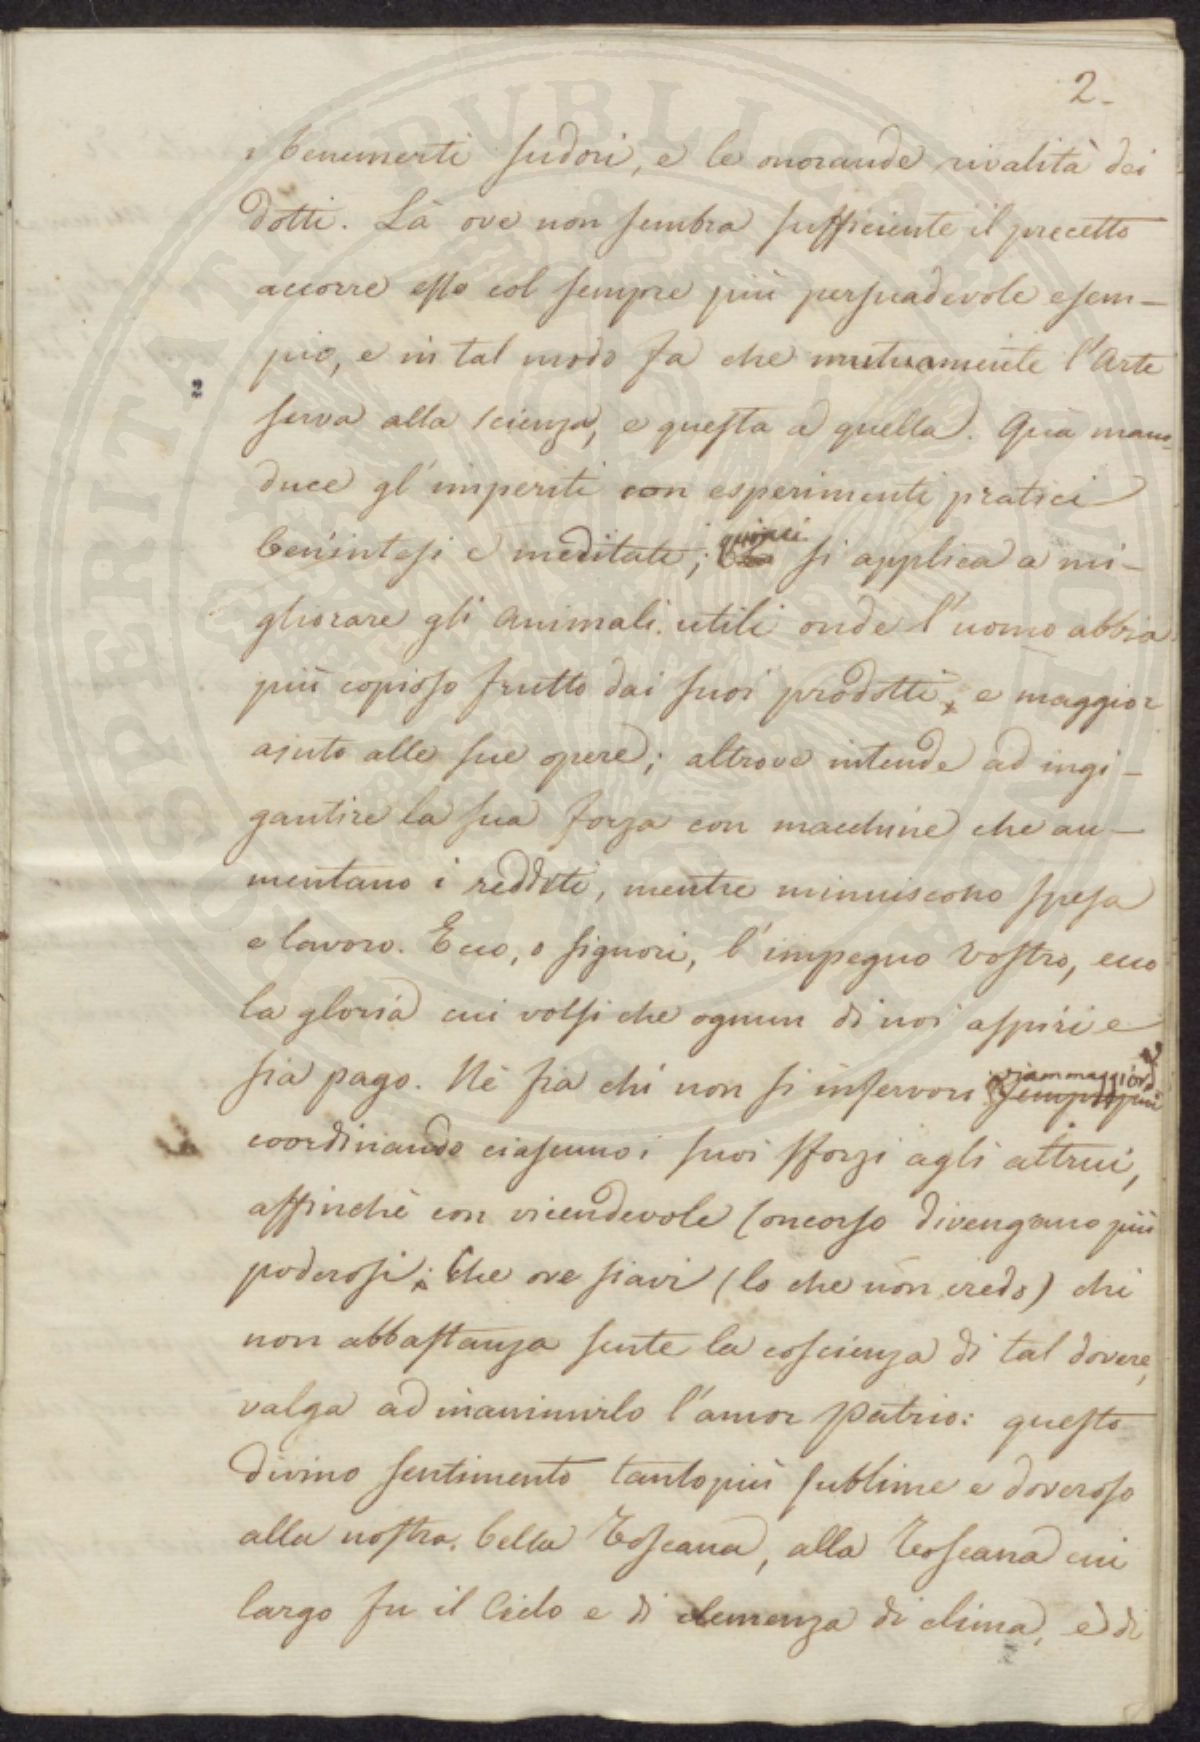 2-
i benemerti sudori, e le onorande rivalità dei
dotti. Là ove non sembra sufficiente il precetto
accorre esso col sempre più persuadevole esem-
pio, e in tal modo fa che mutuamente l'Arte
serva alla scienza, e questa a quella. Quà manu-
2
duce gl'imperiti con esperimenti pratici
benintesi e meditati; quinci si applica a mi-
gliorare gli animali utili onde l'uomo abbia
più copioso frutto dai suoi prodotti, e maggior
ajuto alle sue opere; altrove intende ad ingi-
gantire la sua forza con macchine che au-
mentano i redditi, mentre minuiscono spesa
e lavoro. Ecco, o signori, l'impegno vostro, ecco
la gloria cui volsi che ognun di noi aspiri e
sia pago. Nè fia chi non si infervori viammaggiore
coordinando ciascuno i suoi sforzi agli altrui,
affinchè con vicendevole concorso divengano più
poderosi; Che ove siavi (lo che non credo) chi
non abbastanza sente la coscienza di tal dovere,
valga ad inanimirlo l'amor patrio: questo
divino sentimento tantopiù sublime e doveroso
alla nostra bella Toscana, alla Toscana cui
largo fu il Cielo e di clemenza di clima, e di
SAPERITATI PUBLICAE